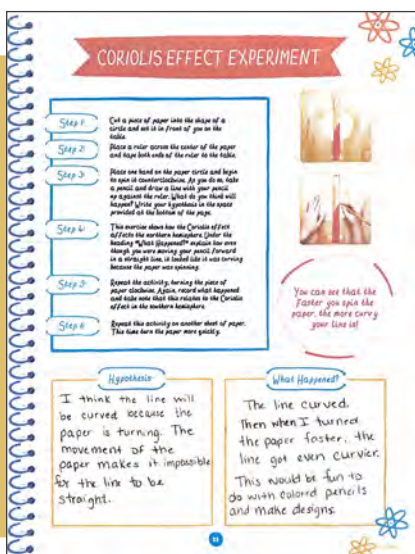 CORIOLIS EFFECT EXPERIMENT
Step 1:
Cut a piece of paper into the shape of a
circle and set it in front of you on the
table.
Step 2:
Place a ruler across the center of the paper
and tape both ends of the ruler to the table.
Step 3:
Place one hand on the paper circle and begin
to spin it counterclockwise. As you do so, take
a pencil and draw a line with your pencil
up against the ruler. What do you think will
happen? Write your hypothesis in the space
provided at the bottom of the page.
Step 4:
This exercise shows how the Coriolis effect
affects the northern hemisphere. Under the
heading "What Happened?" explain how even
though you were moving your pencil forward
in a straight line, it looked like it was curving
because the paper was spinning.
Step 5:
Repeat the activity, turning the piece of
paper clockwise. Again, record what happened
and take note that this relates to the Coriolis
effect in the southern hemisphere.
Step 6:
Repeat this activity on another sheet of paper.
This time turn the paper more quickly.
You can see that the
faster you spin the
paper, the more curvy
your line is!
Hypothesis:
I think the line will
be curved because the
paper is turning. The
movement of the
paper makes it impossible
for the line to be
straight.
What Happened?
The line curved.
Then when I turned
the paper faster, the
line got even curvier.
This would be fun to
do with colored pencils
and make designs.